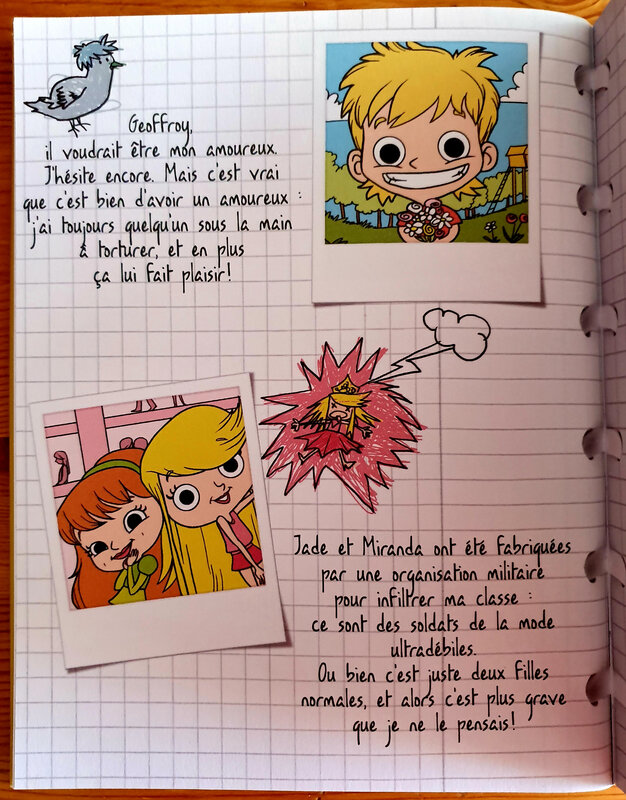 Geoffroy,
il voudrait être mon amoureux.
J'hésite encore. Mais c'est vrai
que c'est bien d'avoir un amoureux :
j'ai toujours quelqu'un sous la main
à torturer, et en plus
ça lui fait plaisir!
Jade et Miranda ont été fabriquées
par une organisation militaire
pour infiltrer ma classe :
ce sont des soldats de la mode
ultradébiles.
Ou bien c'est juste deux filles
normales, et alors c'est plus grave
que je ne le pensais!